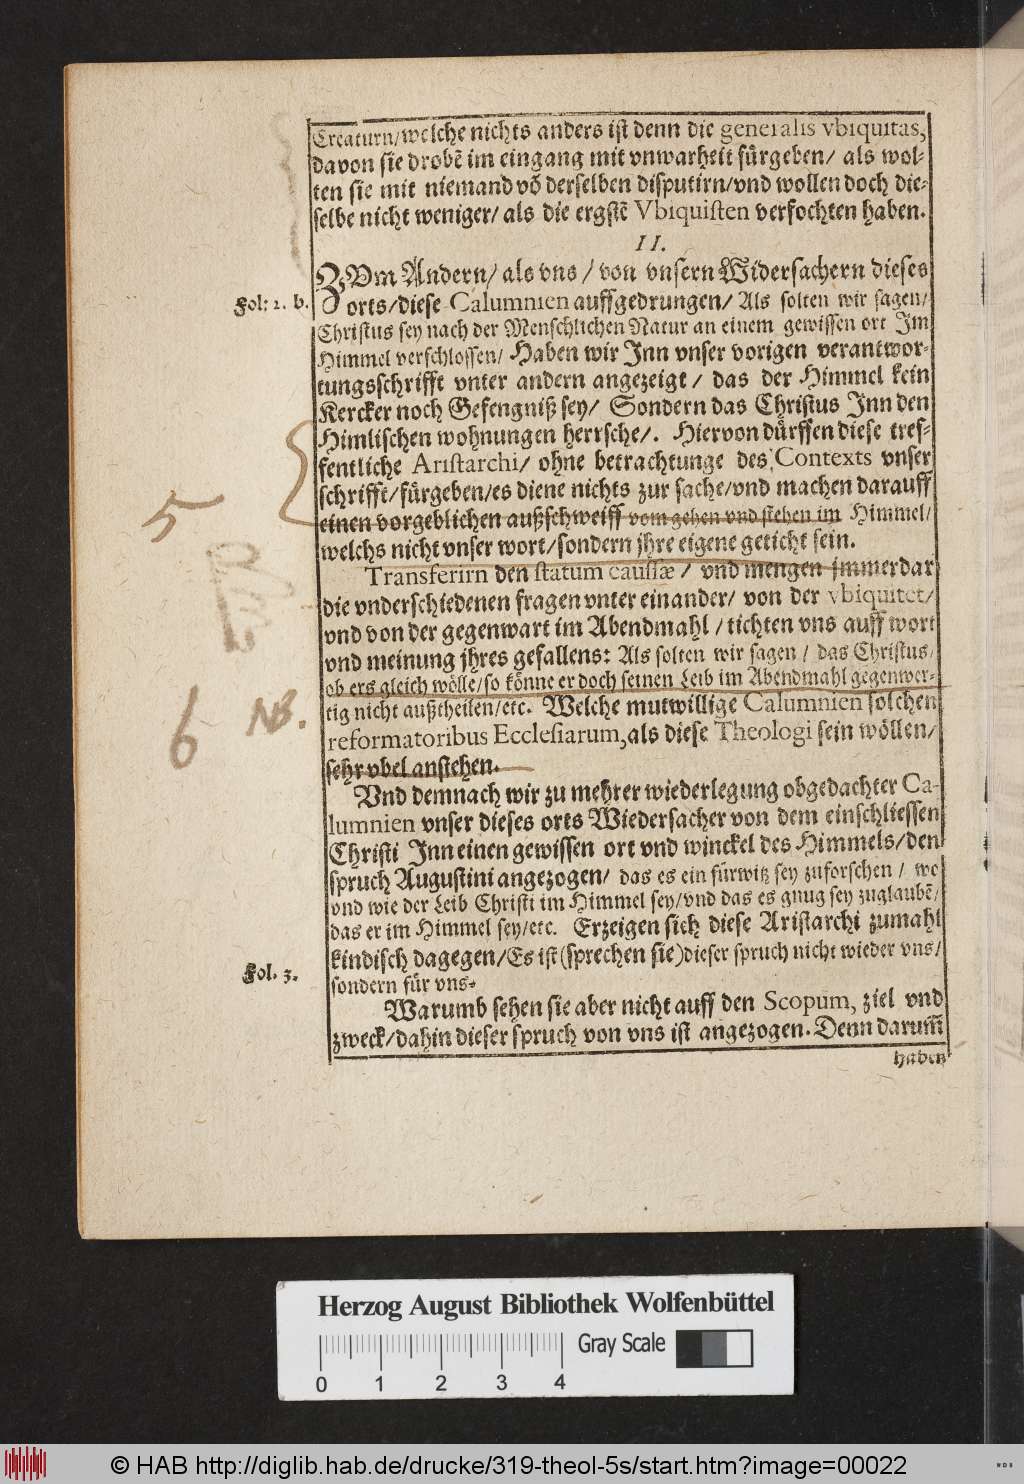 Creaturn/welche nichts anders ist denn die generalis vbiquitas,
davon sie drobē im eingang mit vnwarheit fürgeben/ als wol-
ten sie mit niemand vō derselben disputirn/vnd wollen doch die-
selbe nicht weniger/ als die ergstē Vbiquisten verfochten haben.
II.
ZVm Andern/ als vns / von vnsern Widersachern dieses
Fol: 2. b.
orts/diese Calumnien auffgedrungen/ Als solten wir sagen/
Christus sey nach der Menschlichen Natur an einem gewissen ort Im
Himmel verschlossen/ Haben wir Inn vnser vorigen verantwor-
tungsschrifft vnter andern angezeigt / das der Himmel kein
Kercker noch Gefengniß sey/ Sondern das Christus Inn den
Himlischen wohnungen herrsche/. Hiervon dürffen diese tref-
fentliche Aristarchi/ ohne betrachtunge des Contexts vnser
schrifft/fürgeben/es diene nichts zur sache/vnd machen darauff
5
einen vorgeblichen außschweiff vom gehen vnd stehen im Himmel/
welchs nicht vnser wort/sondern jhre eigene geticht sein.
Transferirn den statum caussæ / vnd mengen jmmerdar
die vnderschiedenen fragen vnter einander/ von der vbiquitet/
vnd von der gegenwart im Abendmahl / tichten vns auff wort
vnd meinung jhres gefallens: Als solten wir sagen / das Christus/
ob ers gleich wölle/so könne er doch seinen Leib im Abendmahl gegenwer-
6 NB.
tig nicht außtheilen/etc. Welche mutwillige Calumnien solchen
reformatoribus Ecclesiarum, als diese Theologi sein wöllen/
sehr vbel anstehen.
Vnd demnach wir zu mehrer wiederlegung obgedachter Ca-
lumnien vnser dieses orts Wiedersacher von dem einschliessen
Christi Inn einen gewissen ort vnd winckel des Himmels/den
spruch Augustini angezogen/ das es ein fürwitz sey zuforschen / wo
vnd wie der Leib Christi im Himmel sey/vnd das es gnug sey zuglaubē/
das er im Himmel sey/etc. Erzeigen sich diese Aristarchi zumahl
kindisch dagegen/Es ist (sprechen sie) dieser spruch nicht wieder vns/
Fol. 3.
sondern für vns.
Warumb sehen sie aber nicht auff den Scopum, ziel vnd
zweck/dahin dieser spruch von vns ist angezogen. Denn darum̄
haben
Herzog August Bibliothek Wolfenbüttel
Gray Scale
0 1 2 3 4
© HAB http://diglib.hab.de/drucke/319-theol-5s/start.htm?image=00022